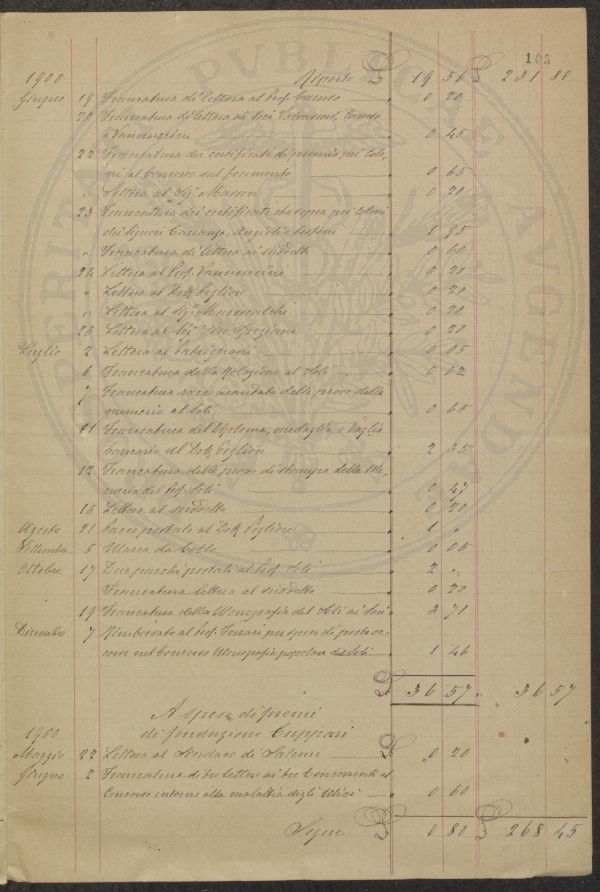 105
1900 Riporto £ 19 56 £ 231 88
Giugno 19 Francatura di lettera al Prof. Caruso 0 20
20 Francatura di lettera ai Soci Caruso
e Vannuccini 0 45
22 Francatura dei certificati di premio pei Colo-
ni al Concorso sul frumento 0 65
" Lettera al Sig. 0 20
23 Francatura dei certificati che sopra pei Coloni
dei Signori 1 95
" Francatura di lettera ai suddetti 0 60
24 Lettera al Prof. Vannuccini 0 20
" Lettera al Dott. Peglion 0 20
" Lettera al Sig. 0 20
25 Lettera al 0 20
Luglio 2 Lettera ai 0 05
6 Francatura della Relazione al Soli 0 62
7 Francatura raccomandata delle prove della
memoria al Soli 0 65
11 Francatura del Diploma, medaglia e Vaglia
bancario al Dott. Peglion 2 35
12 Francatura delle prove di stampa della Me-
moria del Prof. Soli 0 47
16 Lettera al suddetto 0 20
Agosto 21 Pacco postale al Dott. Peglion 1 "
Settembre 5 Marca da bollo 0 05
Ottobre 17 Due pacchi postali al Prof. Soli 2 "
Francatura lettera al suddetto 0 20
19 Francatura della Monografia del Soli ai Soci 3 71
Dicembre 7 Rimborsato al Prof. Ferrari per spese di posta oc-
corse nel Concorso Monografia popolare del Soli 1 46
£ 36 57 " 36 57
A spese di premi
di fondazione Cuppari
1900
Maggio 22 Lettera al Sindaco di Salemi £ 0 20
Giugno 2 Francatura di tre lettere ai tre Concorrenti al
Concorso intorno alla malattia degli Ulivi 0 60
Segue £ 0 80 £ 268 45